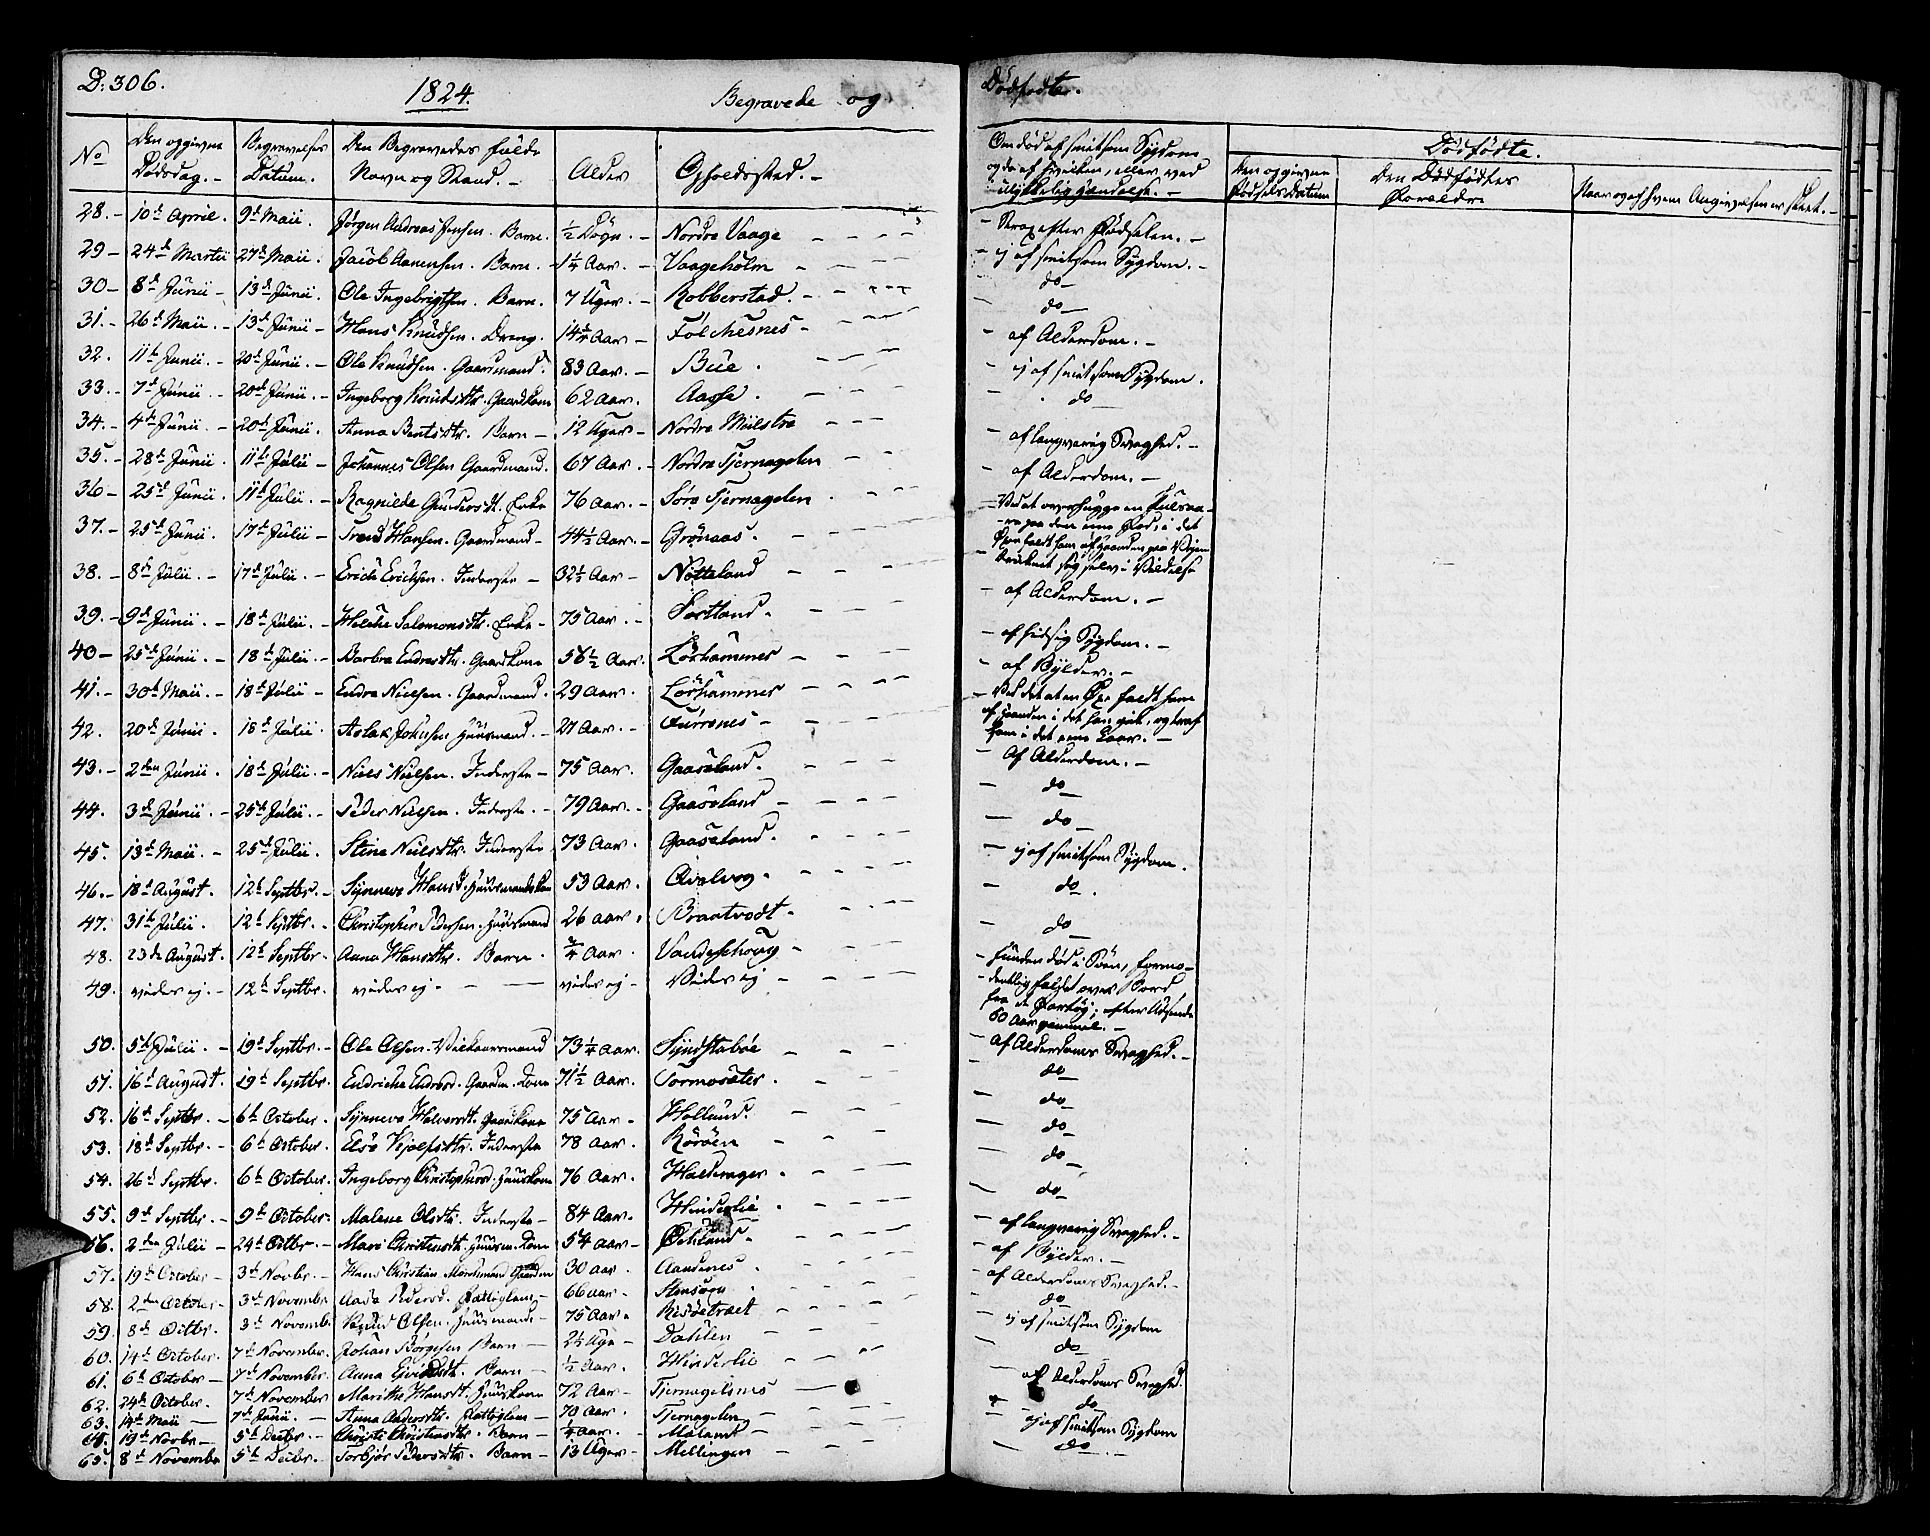 D: 306.
1824.
Begravede og
No
Den opgivne Dødsdag. -
Begravelses Datum.
Den Begravedes fulde Navn og Stand. -
Alder
Opholdssted. -
28. - 10de April. 9de Maii. Jørgen Andreas Jensen. Barn. ½ Døgn. - Nordre Vaage
29 - 24de Martii 27de Maii. Jacob Aanensen. Barn. - 1¼ Aar. - Vaageholm
30 - 8de Junii - 13de Junii. Ole Ingebrigtsen. Barn. 7 Uger. - Robberstad. -
31. - 26de Maii. - 13de Junii - Hans Knudsen. Dreng. 14¼ Aar - Folchesnes -
32. 11te Junii. - 20de Junii. - Ole Knudsen. Gaardmand. 83 Aar. - Bue.
33. - 7de Junii. - 20de Junii. - Ingeborg Knudsdtr. Gaardkone 62 Aar. Aase.
34. - 4de Junii. - 20de Junii. Anna Bentsdtr. Barn - 12 Uger - Nordre
35. - 28de Junii. 11te Julii - Johannes Olsen Gaardmand. 67 Aar. - Nordre Tjernagelen
36 - 25de Junii. 11te Julii - Ragnilde Gundersdt. Enke 76 Aar. - Søre Tjernagelen.
37. - 25de Junii. 17de Julii - Trond Hansen. Gaardmand - 44½ Aar - Grønaas.
38. - 8de Julii. - 17de Julii. - Erich Erichsen. Inderste - 32½ Aar - Notteland
39. - 9de Junii. - 18de Julii. - Helche Salomonsdtr. Enke - 75 Aar. -
40 - 25de Junii. - 18de Julii. - Barbra Endresdtr. Gaardkone 56½ Aar. Lørhammer
41. - 30te Maii. - 18de Julii - Endre Nielsen. Gaardmand. 29 Aar. Lørhammer
42. 20de Junii. 18de Julii. - Aslak Johnsen Huusmand. - 27 Aar. -
43. - 2den Junii. 18de Julii. - Niels Nielsen. Inderste - 75 Aar. Gaaseland.
44. 3de Junii. - 25de Julii. - Peder Nielsen. Inderste. - 79 Aar. - Gaaseland -
45. 13de Maii. - 25de Julii. Stine Nielsdtr. Inderste 73 Aar. Gaaseland.
46. - 18de August. 12te Septbr. - Synneve Hansd. Huusmandskone 53 Aar. Qvalvog -
47. 31te Julii. 12te Septbr. - Christopher Pedersen. Huusmand 26 Aar. Braatvedt -
48. 23de August. 12te Septbr - Anna Hansdtr. Barn. ¾ Aar.
49. vides ej. - 12te Septbr. vides ej - vides ej - Vides ej -
50. 5te Julii. - 19de Septbr. - Ole Olsen. Vilkaarsmand 73¼ Aar. Syndstabøe
51. 16de August. 19de Septbr. - Kone 71½ Aar. Tormosæter.
52. 16de Septbr. - 6te October. Synneve Halvorsdt. Gaardkone 75 Aar - Holland.
53. 18de Septbr. - 6te October. Else Kjelsdtr. Inderste 78 Aar. Røröen
54. 26de Septbr. 6te October. Ingeborg Christophersd. Huuskone 76 Aar.
55. 9de Septbr. - 9de October. Malene Olsdtr. Inderste - 84 Aar. Hinderlie
56. 2den Julii - 24de Octbr. - Mari Christensdt. Huusm. Kone 54 Aar -
57. 19de October - 3de Novbr. - Hans Christian 30 Aar.
58. 2den October - 3de Novembr Aase Pedersd. Fattiglem - 66 Aar -
59. 8de Octbr. 3de Novembr Knud Olsen. Huusmand - 75 Aar - Risøetræet
60. 14de October. 7de November. Johan Børgesen Barn - 2½ Uge - Dahlen
61. 6te October - 7de November. Anna Barn - ½ Aar. Hinderlie
62. 24de October. 7de November Marithe Hansdt. Huuskone 72 Aar - Tjernagelsnes
63. 14de Maii - 7de Junii. - Anna Andersdtr. Fattiglem - 70 Aar. Tjernagelen
64. 19de Novbr - 5te Decbr. - Christi Christensdtr. Barn - ¼ Aar.
65. 8de Novembr 5te Decbr. Torbjør Pedersdtr. Barn - 13 Uger - Mellingen
Dødfødte.
Om død af smitsom Sygdom
og da af hvilken, eller ved
ulykkelig Hændelse. -
Dødfødte.
Den opgivne Fødsels Datum
Den Dødfødtes Forældre
Naar og af hvem Angivelsen er skeet. -
- Strax efter Fødselen. -
- ej af smitsom Sygdom. -
do -
do -
- af Alderdom. -
- ej af smitsom Sygdom.
do -
- af langvarig Svaghed. -
- af Alderdom. -
- Ved at overhugge en Pulsaa-
re paa den ene Fod, i det
Øxen faldt ham af Haanden paa Veien
- Druknet sig selv i Vildelse
- af Alderdom. -
- af hidsig Sygdom. -
- af Bylder. -
- Ved det at en Øxe faldt ham
af Haanden i det han gik, og traf
ham i det ene Laar. -
- Af Alderdom. -
- do -
- do -
- ej af smitsom Sygdom.
- do.
- do -
- Funden død i Søen, formo-
- dentlig faldet over Bord
fra et Fartøy; efter Udseende
60 Aar gammel. -
- af Alderdoms Svaghed. -
- do -
- do -
- do -
- do -
- do -
- af langvarig Svaghed. -
- af Bylder. -
- af Alderdoms Svaghed. -
- do
- ej af smitsom Sygdom
- do -
- af Alderdoms Svaghed.
- do
- ej af smitsom Sygdom
- do -